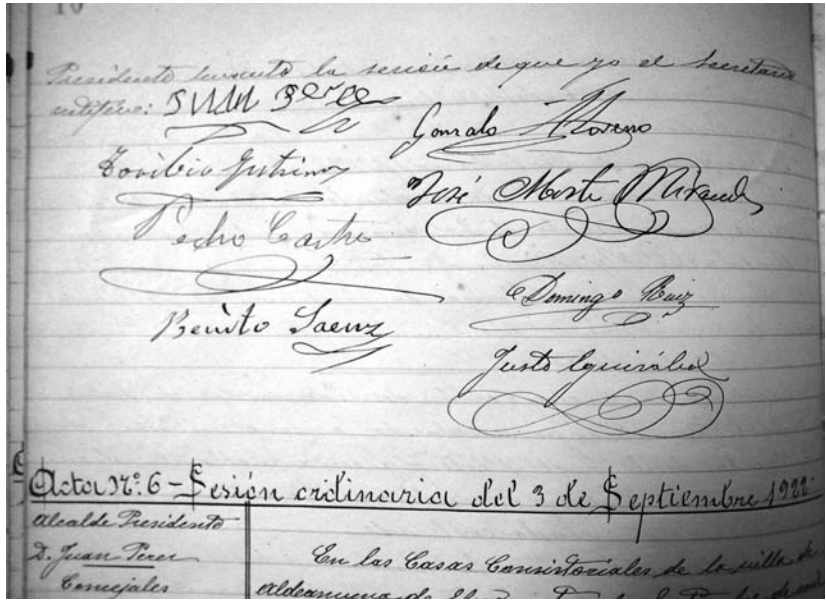 10
Presidente levanta la sesión de que yo el Secretario
certifico: JUAN Perez
Gonzalo Moreno
Toribio Gutierrez
José Marti Miranda
Pedro Castro
Domingo Ruiz
Benito Saenz
Justo Eguizábal
Acta Nº: 6 - Sesión ordinaria del 3 de Septiembre 1922
Alcalde Presidente
D. Juan Perez
En las Casas Consistoriales de la villa de
Concejales
Aldeanueva de